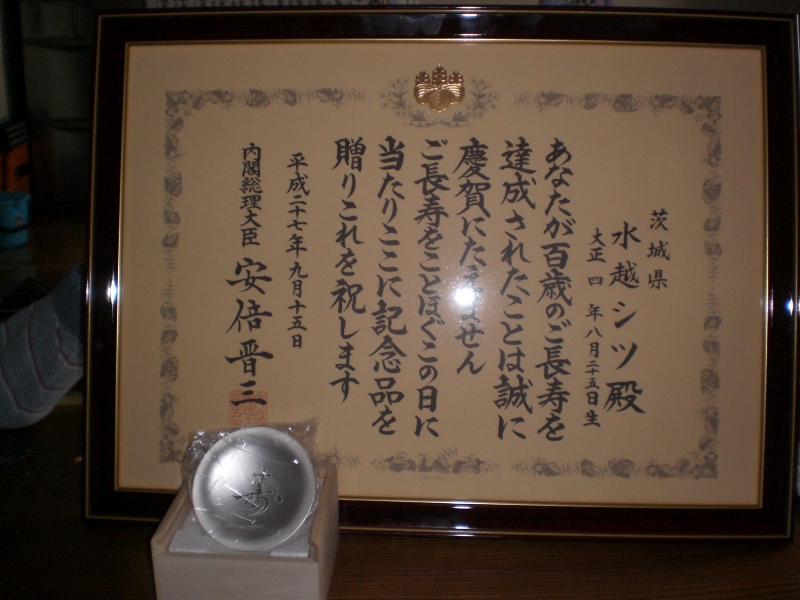 茨城県
水越シツ殿
大正四年八月二十五日生
あなたが百歳のご長寿を
達成されたことは誠に
慶賀にたえません
ご長寿をことほぐこの日に
当たりここに記念品を
贈りこれを祝します
平成二十七年九月十五日
内閣総理大臣 安倍晋三
寿